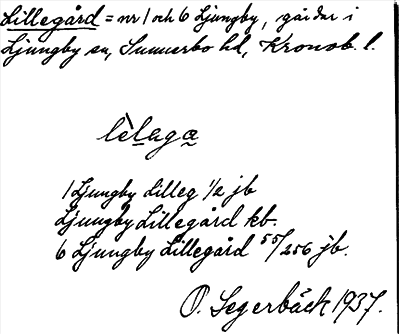 Lillegård = nr 1 och 6 Ljungby, gårdar i
Ljungby sn, Sunnerbo hd, Kronob. l.
lèlagæ
1 Ljungby Lilleg 1/2 jb
Ljungby Lillegård kb.
6 Ljungby Lillegård 55/256 jb.
O. Segerbäck 1937.